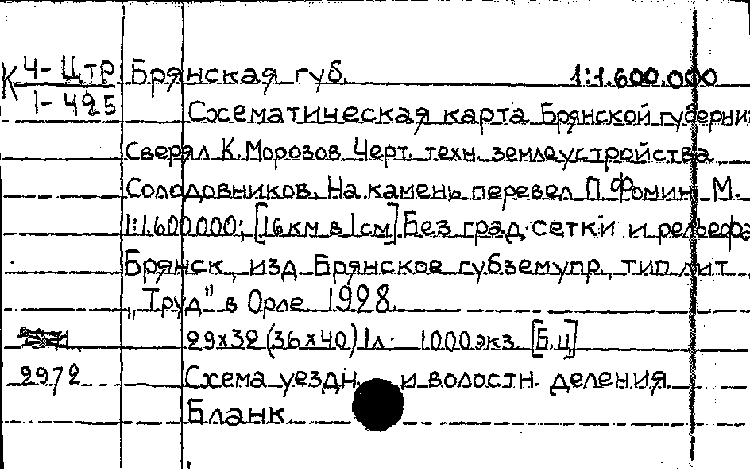 К 4-Цтр Брянская губ. 1:1.600.000
1-495 Схематическая карта Брянской губернии
Сверял К. Морозов. Черт. техн. землеустройства
Солодовников. На камень перевел П. Фомин. М.
1:1.600.000; [16 км в 1 см] Без град. сетки и рельефа
Брянск, изд. Брянское губземупр., тип. лит.
„Труд" в Орле 1928.
29х32 (36х40) 1 л. 1000 экз. [Б.ц]
2972 Схема уездн. и волостн. деления
Бланк.